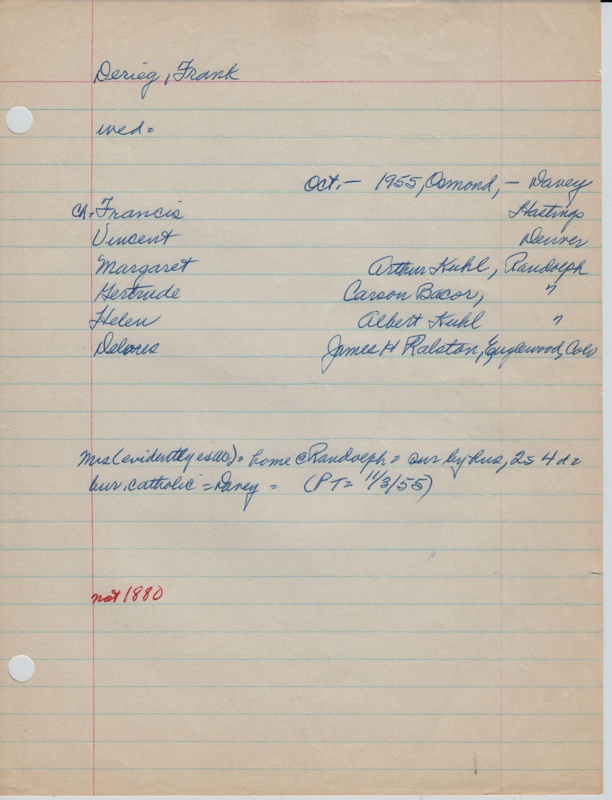 Derieg, Frank
wed =
Oct. - 1955, Osmond, - Davey
Ch. Francis Hastings
Vincent Denver
Margaret Arthur Kuhl, Randolph
Gertrude Carson Bacor, "
Helen Albert Kuhl "
Delores James H Ralston, Englewood, Colo
Mrs (evidently = home @ Randolph = sur by hus, 2s 4d =
bur. catholic = Davey = (PT = 11/3/55)
not 1880